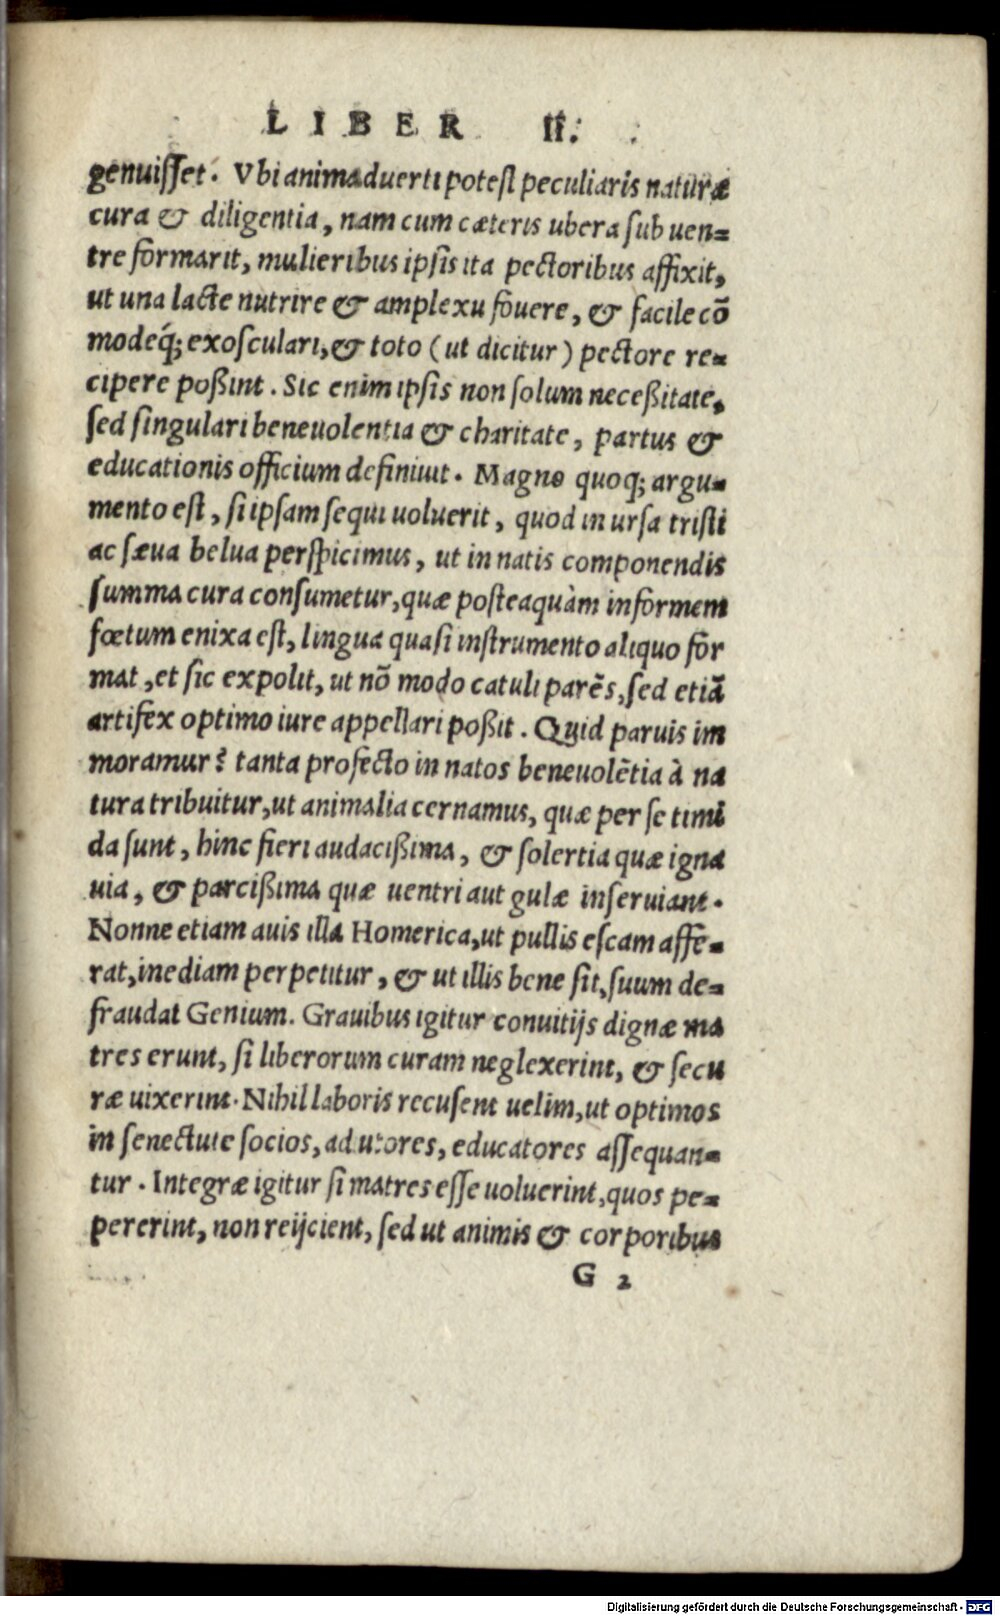 LIBER II.
genuiſſet. Vbi animaduerti poteſt peculiaris naturæ
cura & diligentia, nam cum cæteris ubera ſub uen=
tre formarit, mulieribus ipſis ita pectoribus affixit,
ut una lacte nutrire & amplexu fouere, & facile cō
modeq́; exoſculari, & toto (ut dicitur) pectore re=
cipere poßint. Sic enim ipſis non ſolum neceßitate,
ſed ſingulari beneuolentia & charitate, partus &
educationis officium definiuit. Magno quoq; argu=
mento eſt, ſi ipſam ſequi uoluerit, quod in urſa triſti
ac ſæua belua perſpicimus, ut in natis componendis
ſumma cura conſumetur, quæ poſteaquàm informem
fœtum enixa eſt, lingua quaſi inſtrumento aliquo for
mat, et ſic expolit, ut nō modo catuli parēs, ſed etiā
artifex optimo iure appellari poßit. Quid paruis im
moramur? tanta profecto in natos beneuolētia à na
tura tribuitur, ut animalia cernamus, quæ per ſe timi
da ſunt, hinc fieri audacißima, & ſolertia quæ igna
uia, & parcißima quæ uentri aut gulæ inſeruiant.
Nonne etiam auis illa Homerica, ut pullis eſcam affe=
rat, inediam perpetitur, & ut illis bene ſit, ſuum de=
fraudat Genium. Grauibus igitur conuitijs dignæ ma
tres erunt, ſi liberorum curam neglexerint, & ſecu
ræ uixerint. Nihil laboris recuſent uelim, ut optimos
in ſenectute ſocios, adiutores, educatores aſſequan=
tur. Integræ igitur ſi matres eſſe uoluerint, quos pe=
pererint, non reijcient, ſed ut animis & corporibus
G 2
Digitalisierung gefördert durch die Deutsche Forschungsgemeinschaft - DFG